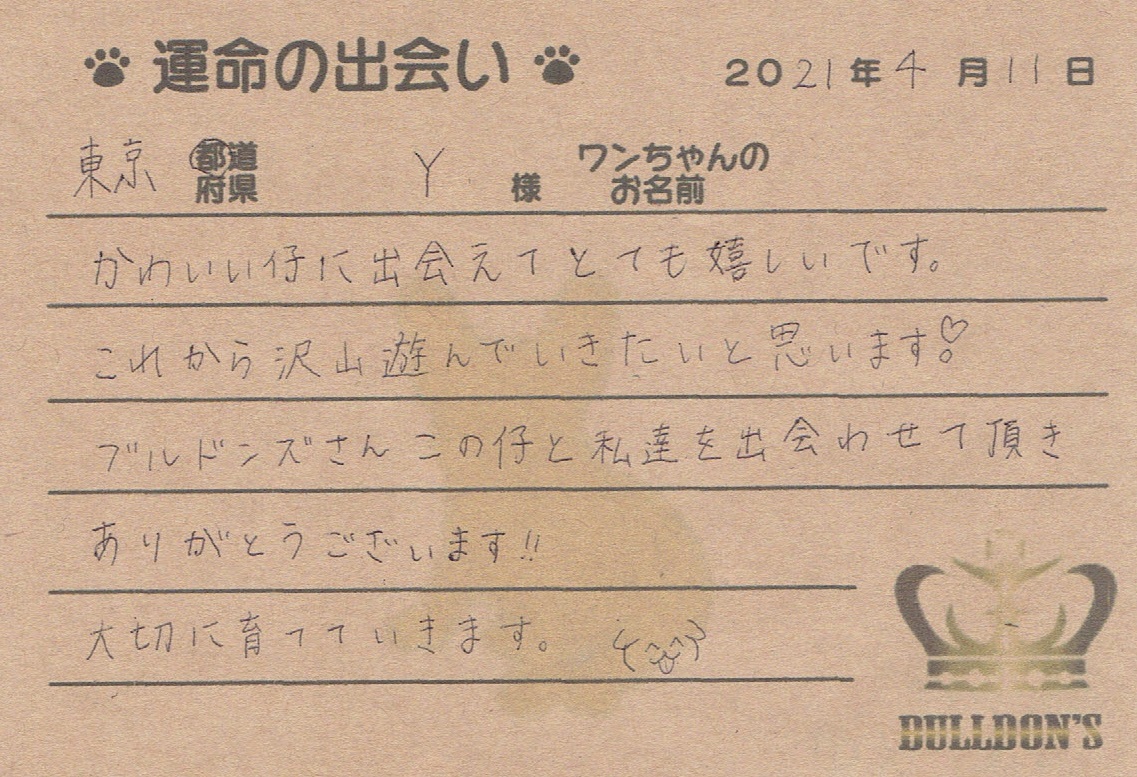 運命の出会い 2021年4月11日
東京 都道府県 Y 様 ワンちゃんのお名前
かわいい仔に出会えてとても嬉しいです。
これから沢山遊んでいきたいと思います♡
ブルドンズさんこの仔と私達を出会わせて頂き
ありがとうございます!!
大切に育てていきます。
BULLDON'S